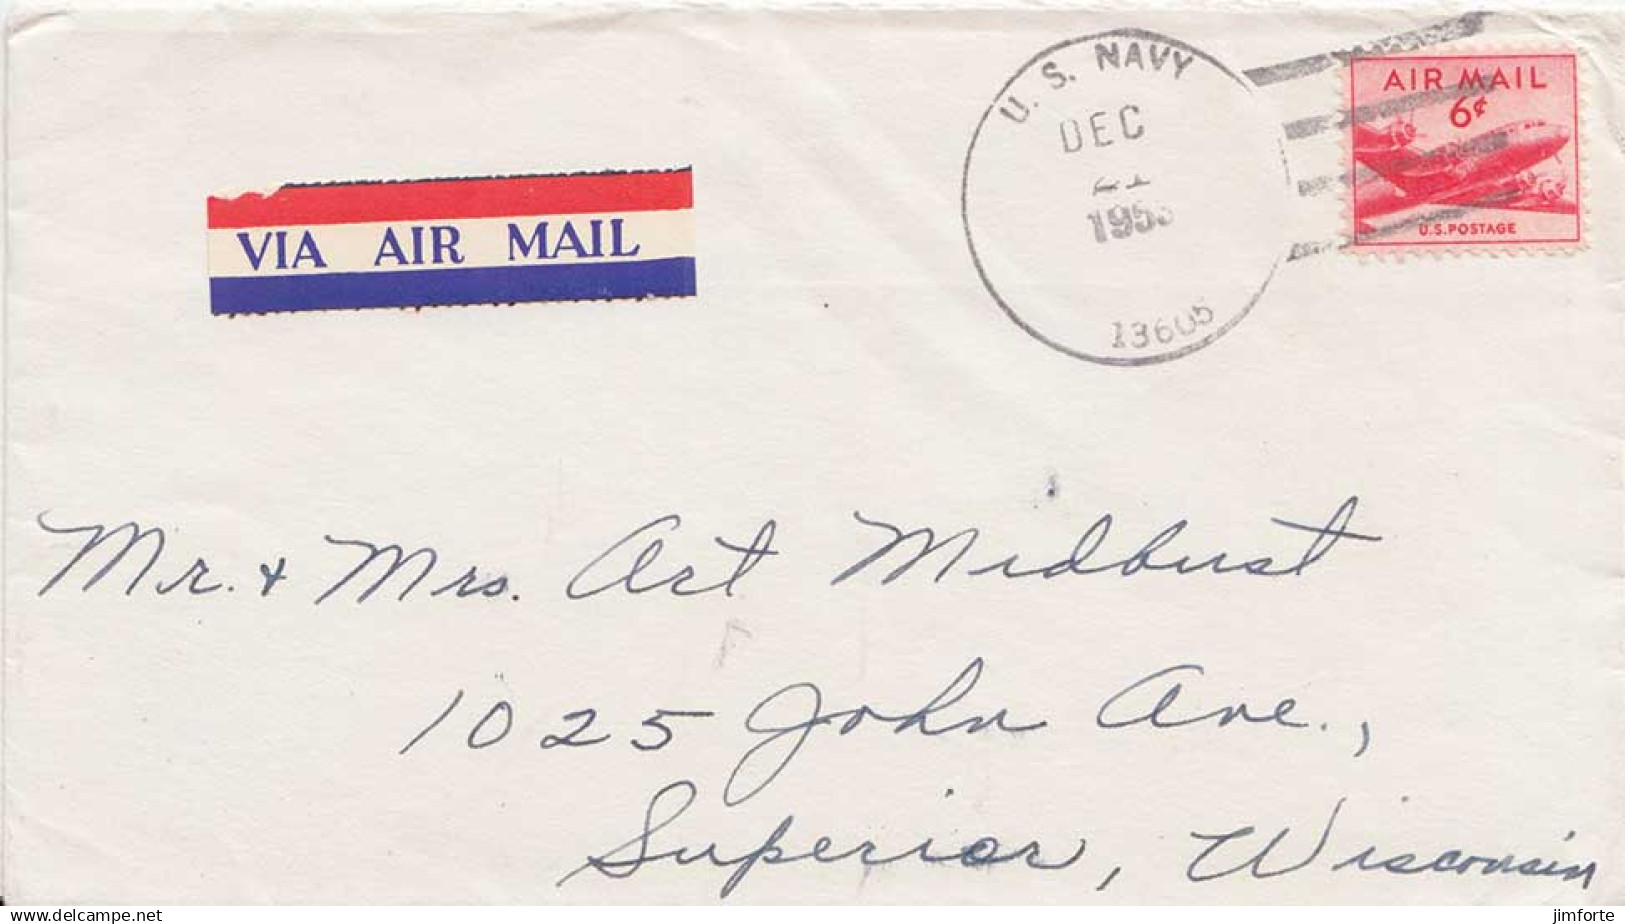 U. S. NAVY
DEC
21
13605
AIR MAIL
6¢
U.S. POSTAGE
VIA AIR MAIL
Mr. + Mrs. Art Midbust
1025 John Ave.,
Superior, Wisconsin
delcampe.net
jimforte